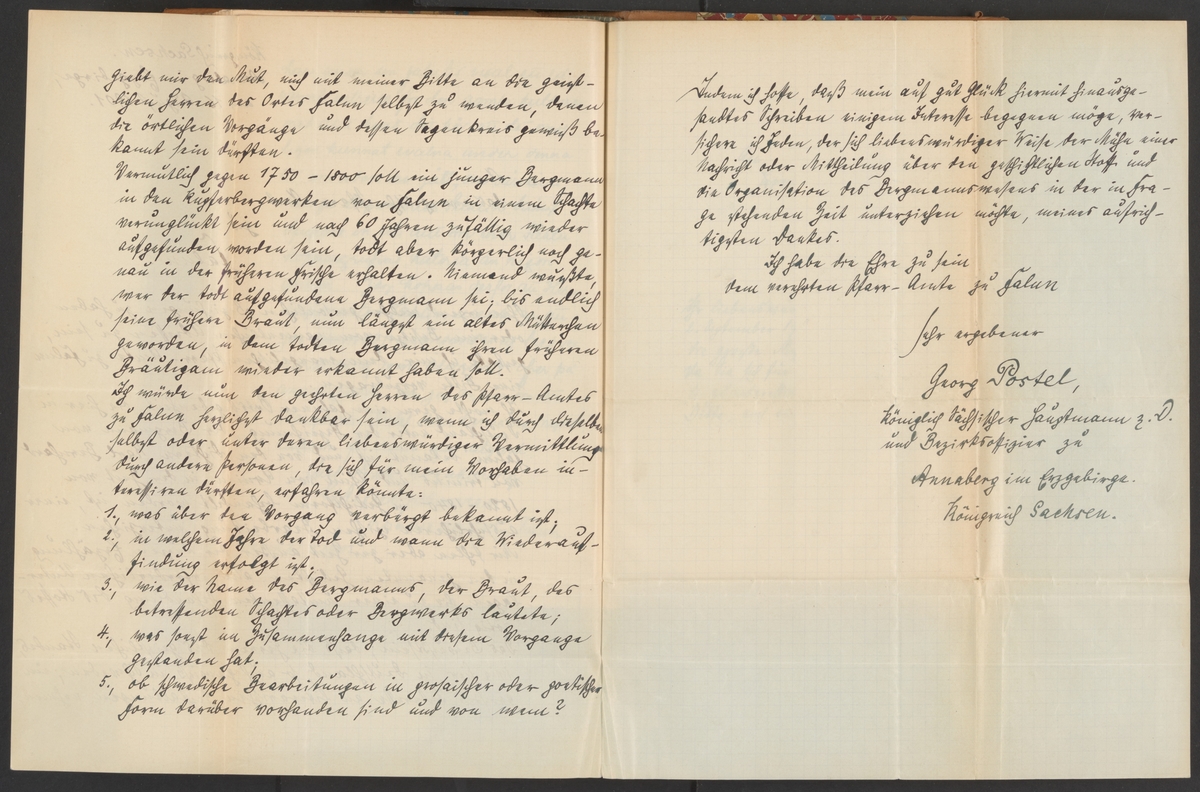 giebt mir den Mut, mich mit meiner Bitte an die geist-
lichen Herren des Ortes Falun selbst zu wenden, denen
die örtlichen Vorgänge und dessen Sagenkreis gewiß be-
kannt sein dürften.
Vermutlich gegen 1750 – 1800 soll ein junger Bergmann
in den Kupferbergwerken von Falun in einem Schachte
verunglückt sein und nach 60 Jahren zufällig wieder
aufgefunden worden sein, todt aber körperlich noch ge-
nau in der früheren Frische erhalten. Niemand wußte,
wer der todt aufgefundene Bergmann sei; bis endlich
seine frühere Braut, nun längst ein altes Mütterchen
geworden, in dem todten Bergmann ihren früheren
Bräutigam wieder erkannt haben soll.
Ich würde nun den geehrten Herren des Pfarr-Amtes
zu Falun herzlichst dankbar sein, wenn ich durch dieselben
selbst oder unter deren liebenswürdiger Vermittlung
durch andere Personen, die sich für mein Vorhaben in-
teressiren dürften, erfahren könnte:
1., was über den Vorgang verbürgt bekannt ist;
2., in welchem Jahre der Tod und wann die Wiederauf-
findung erfolgt ist;
3., wie der Name des Bergmanns, der Braut, des
betreffenden Schachtes oder Bergwerks lautete;
4., was sonst im Zusammenhange mit diesem Vorgange
gestanden hat;
5., ob schwedische Bearbeitungen in prosaischer oder poetischer
Form darüber vorhanden sind und von wem?
Indem ich hoffe, daß mein auf gut Glück hiermit hinausge-
sandtes Schreiben einigem Interesse begegnen möge, ver-
sichere ich Jeden, der sich liebenswürdiger Weise der Mühe einer
Nachricht oder Mittheilung über den geschichtlichen Stoff und
die Organisation des Bergmannswesens in der in Fra-
ge stehenden Zeit unterziehen möchte, meines aufrich-
tigsten Dankes.
Ich habe die Ehre zu sein
dem verehrten Pfarr-Amte zu Falun
sehr ergebener
Georg Postel,
Königlich Sächsischer Hauptmann z. D.
und Bezirksoffizier zu
Annaberg im Erzgebirge.
Königreich Sachsen.